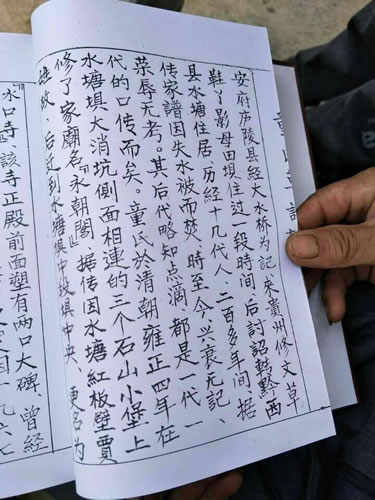 安府庐陵县经大水桥为記、来貴州修文草
鞋丫影母田垻住过一段時间、后討詔转黔西
县水塘住居、历经十几代人、二百多年间、据
传家譜因失水被而焚、時至今兴衰无記、
荣辱无考。其后代略知点滴、都是一代一
代的口传而矣。童氏於清朝雍正四年在
水塘垻大消坑側面相連的三个石山小堡上
修了家廟名『永朝閣』据传因水塘紅板壁賈
姓故、后迁到水塘垻中段垻中央、更名为
水口寺』、該寺正殿前面塑有两口大碑、曾经
九六七